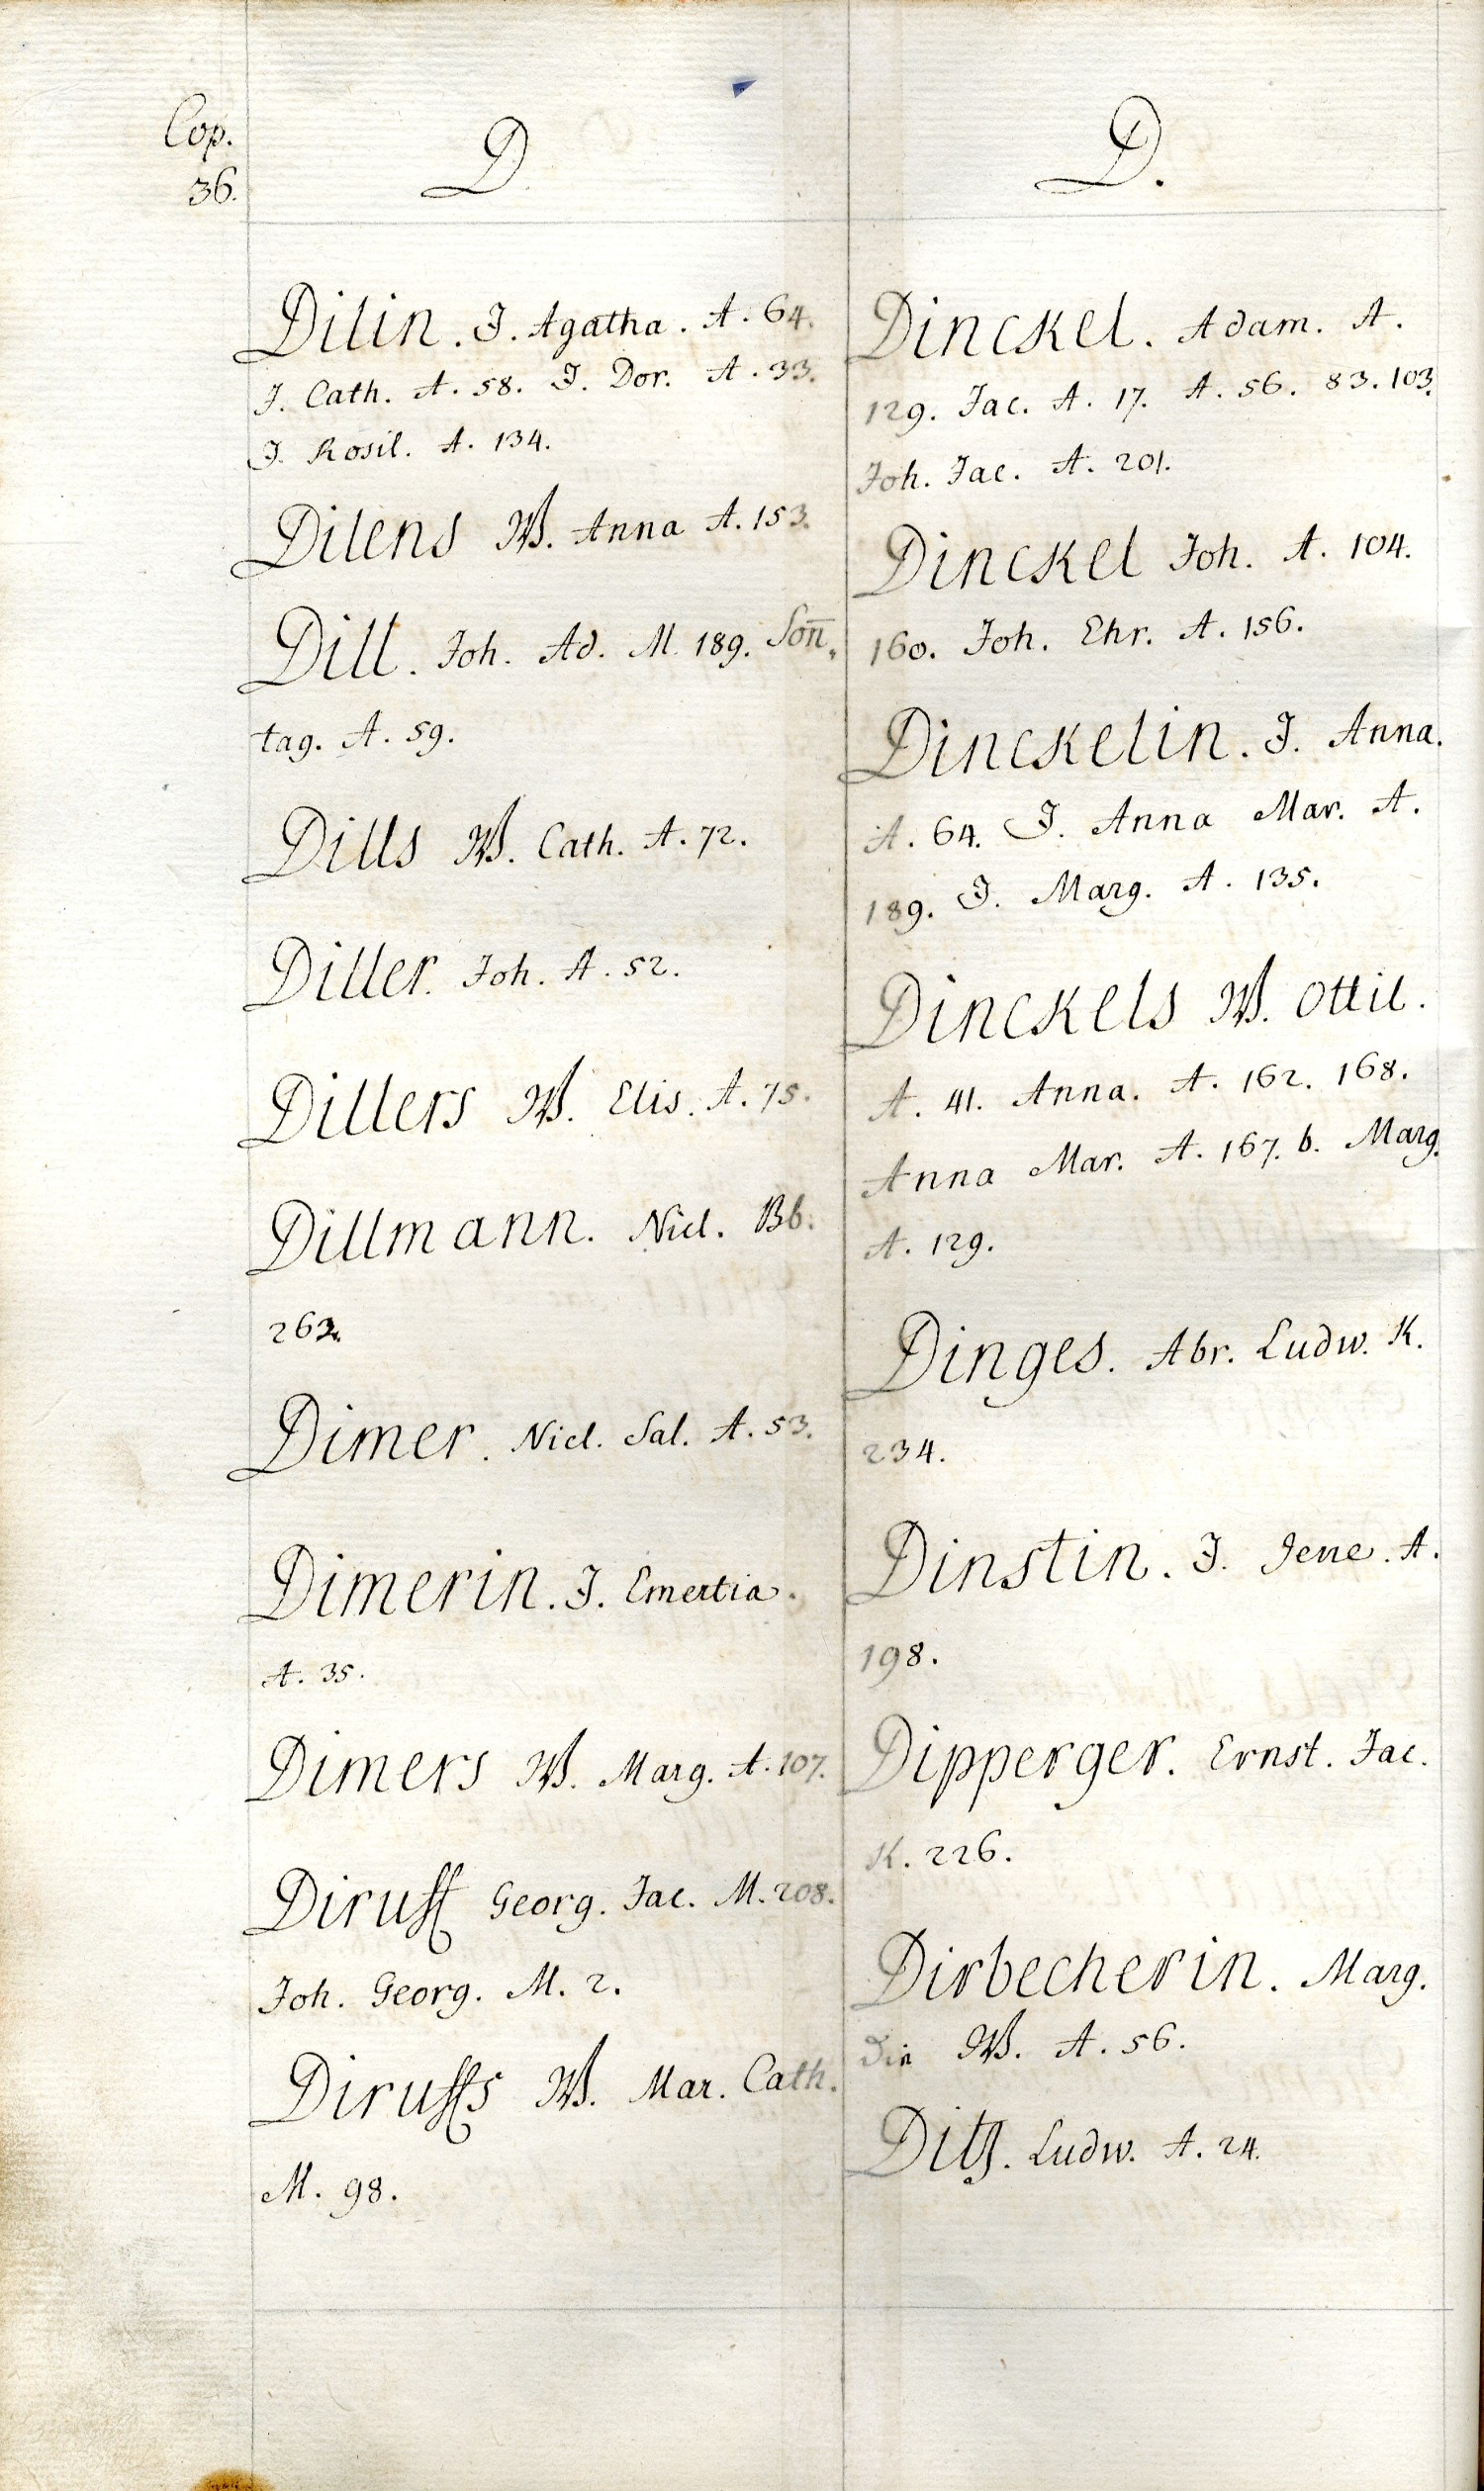 Cop.
36.
D
Dilin. J. Agatha. A. 64.
J. Cath. A. 58. J. Dor. A. 33.
J. Rosil. A. 134.
Dilens W. Anna A. 153.
Dill. Joh. Ad. M. 189. Son̅,
tag. A. 59.
Dills W. Cath. A. 72.
Diller. Joh. A. 52.
Dillers W. Elis. A. 75.
Dillmann. Nicl. Bb.
263.
Dimer. Nicl. Sal. A. 53.
Dimerin. J. Emertia.
A. 35.
Dimers W. Marg. A. 107.
Diruff Georg. Jac. M. 208.
Joh. Georg. M. 2.
Diruffs W. Mar. Cath.
M. 98.
D.
Dinckel. Adam. A.
129. Jac. A. 17. A. 56. 83. 103.
Joh. Jac. A. 201.
Dinckel Joh. A. 104.
160. Joh. Ehr. A. 156.
Dinckelin. J. Anna.
A. 64. J. Anna Mar. A.
189. J. Marg. A. 135.
Dinckels W. Ottil.
A. 41. Anna. A. 162. 168.
Anna Mar. A. 167. b. Marg.
A. 129.
Dinges. Abr. Ludw. K.
234.
Dinstin. J. Jene. A.
198.
Dipperger. Ernst. Jac.
K. 226.
Dirbecherin. Marg.
Die W. A. 56.
Ditz. Ludw. A. 24.